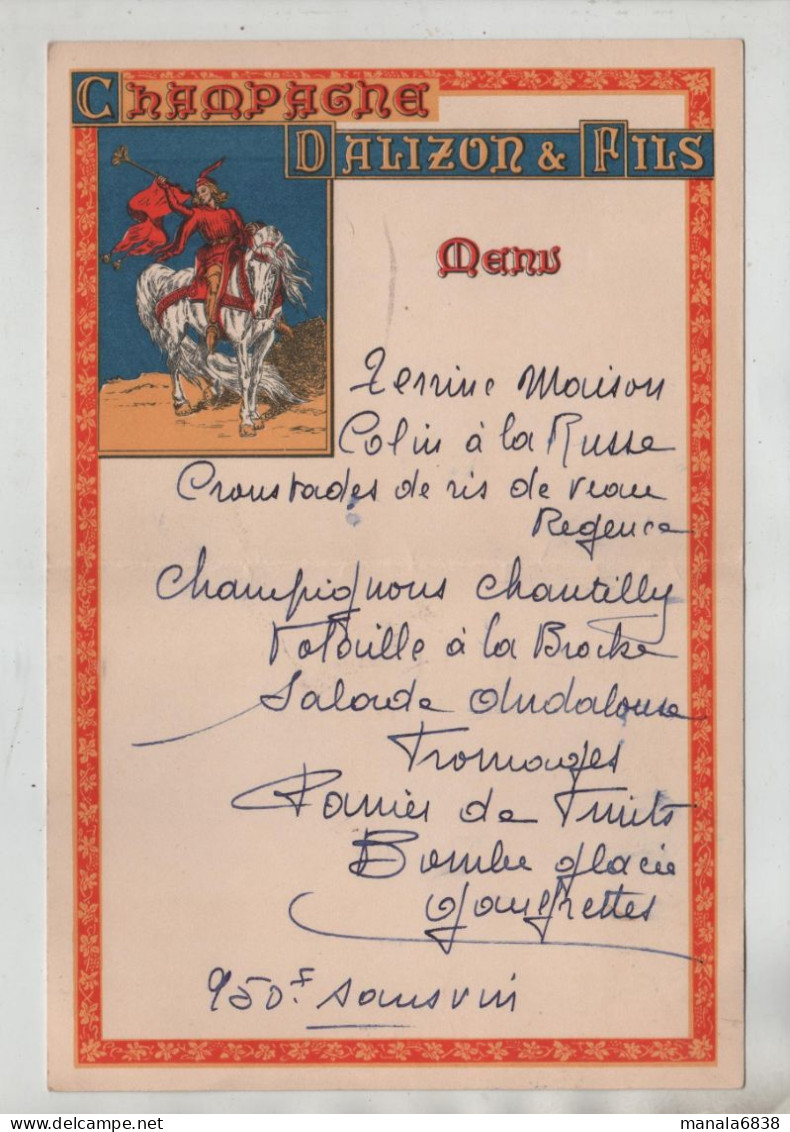 CHAMPAGNE
DALIZON & FILS
MENU
Terrine Maison
Colin à la Russe
Croustades de ris de veau
Regence
Champignons Chantilly
Volaille à la Broche
Salade Andalouse
Fromages
Panier de Fruits
Bombe glacée
Gaufrettes
950F sans vin
manala6838